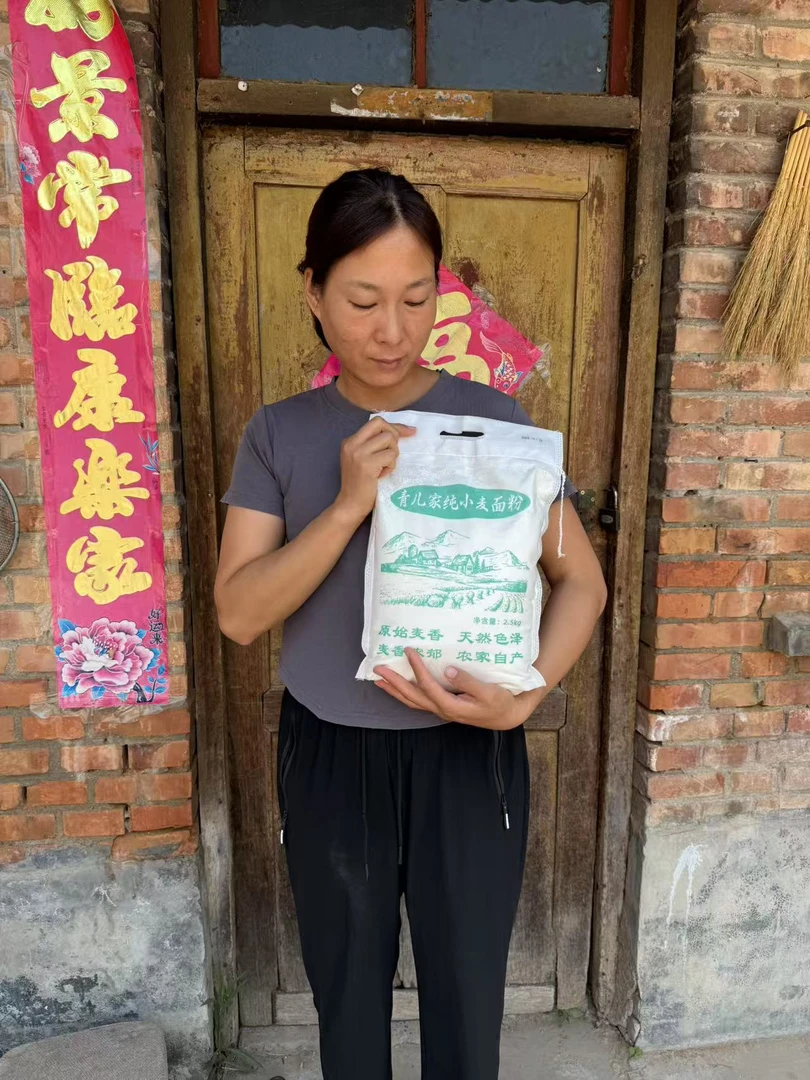 景常臨康樂家
好运来
青儿家纯小麦面粉
净含量:2.5kg
原始麦香 天然色泽
麦香浓郁 农家自产